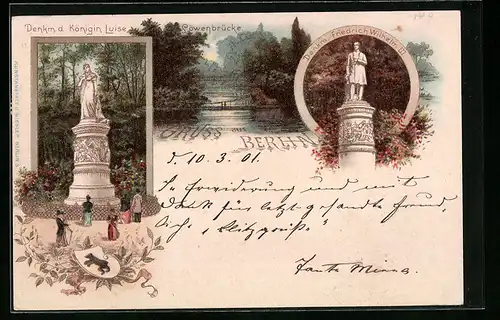 Denkm. d. Königin Luise
Löwenbrücke
Denkm. Friedrich Wilhelm III
GRUSS aus BERLIN
d 10. 3. 01.
In Erwiderung und mit
Dank für letzt gesandte freund,
liche „Blitzgrüße."
Tante Minna